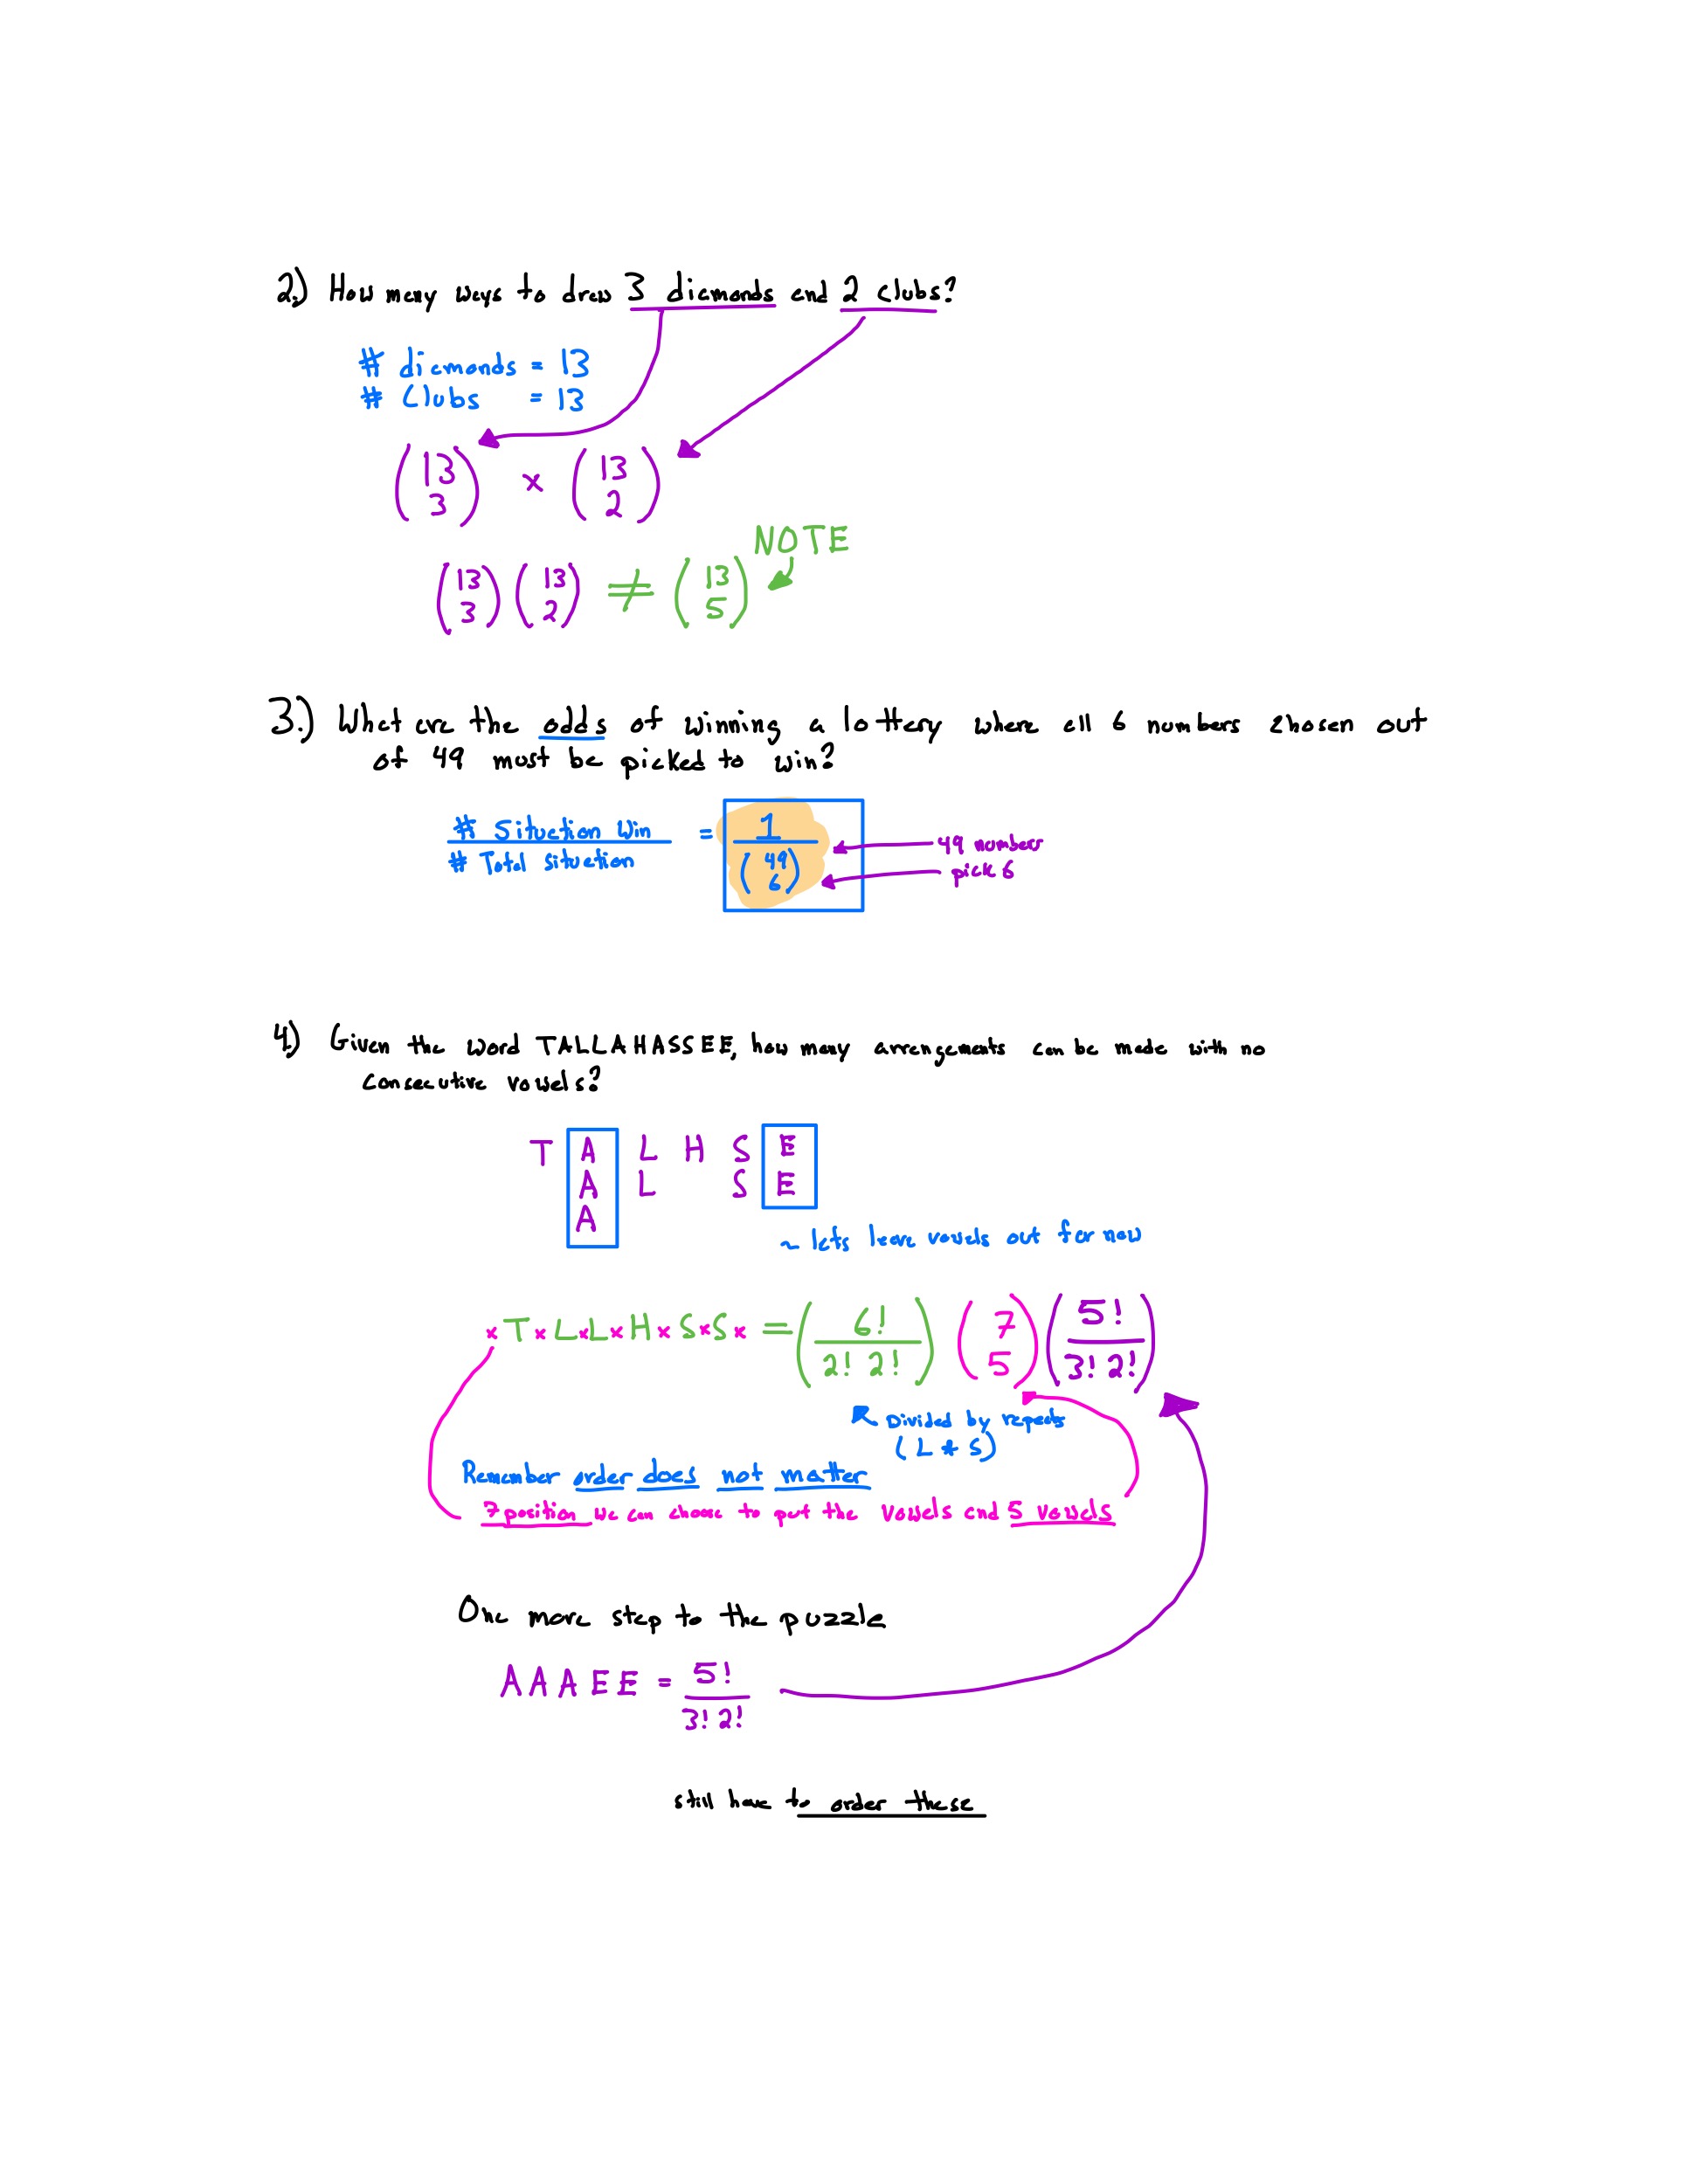 2.) How many ways to draw 3 diamonds and 2 clubs?
# diamonds = 13
# Clubs = 13
(13 3) × (13 2)
NOTE
(13 3) (13 2) ≠ (13 5)
3.) What are the odds of winning a lottery where all 6 numbers chosen out
of 49 must be picked to win?
# Situation Win / # Total Situation = 1 / (49 6)
49 numbers
pick 6
4.) Given the word TALLAHASSEE, how many arrangements can be made with no
consecutive vowels?
T A L H S E
A L S E
A
~ lets leave vowels out for now
× T × L × L × H × S × S × = (6! / 2! 2!) (7 5) (5! / 3! 2!)
Divided by repeats
(L * S)
Remember order does not matter
7 position we can choose to put the vowels and 5 vowels
One more step to the puzzle
AAAEE = 5! / 3! 2!
still have to order these